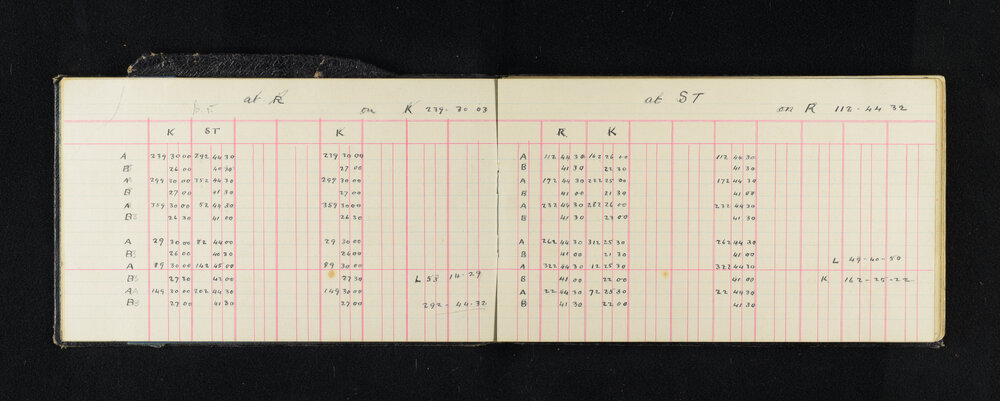 at R
on K 239-30 03
K ST K
A 239 30 00 292 44 30 239 30 00
B 26 00 40 30 27 00
A 299 30 00 352 44 30 299 30 00
B 27 00 41 30 27 00
A 359 30 00 52 44 30 359 30 00
B 26 30 41 00 26 30
A 29 30 00 82 44 00 29 30 00
B 26 00 40 30 26 00
A 89 30 00 142 45 00 89 30 00
B 27 30 42 00 27 30
L 53 14-29
A 149 30 00 202 44 30 149 30 00
B 27 00 41 30 27 00
292-44-32
at ST
on R 112-44 32
R K
A 112 44 30 162 26 00 112 44 30
B 41 30 22 30 41 30
A 172 44 30 222 25 00 172 44 30
B 41 00 21 30 41 00
A 232 44 30 282 26 00 232 44 30
B 41 30 23 00 41 30
A 262 44 30 312 25 30 262 44 30
B 41 00 21 30 41 00
L 49-40-50
A 322 44 30 12 25 30 322 44 30
B 41 00 22 00 41 00
K 162-25-22
A 22 44 30 72 25 30 22 44 30
B 41 30 22 00 41 30